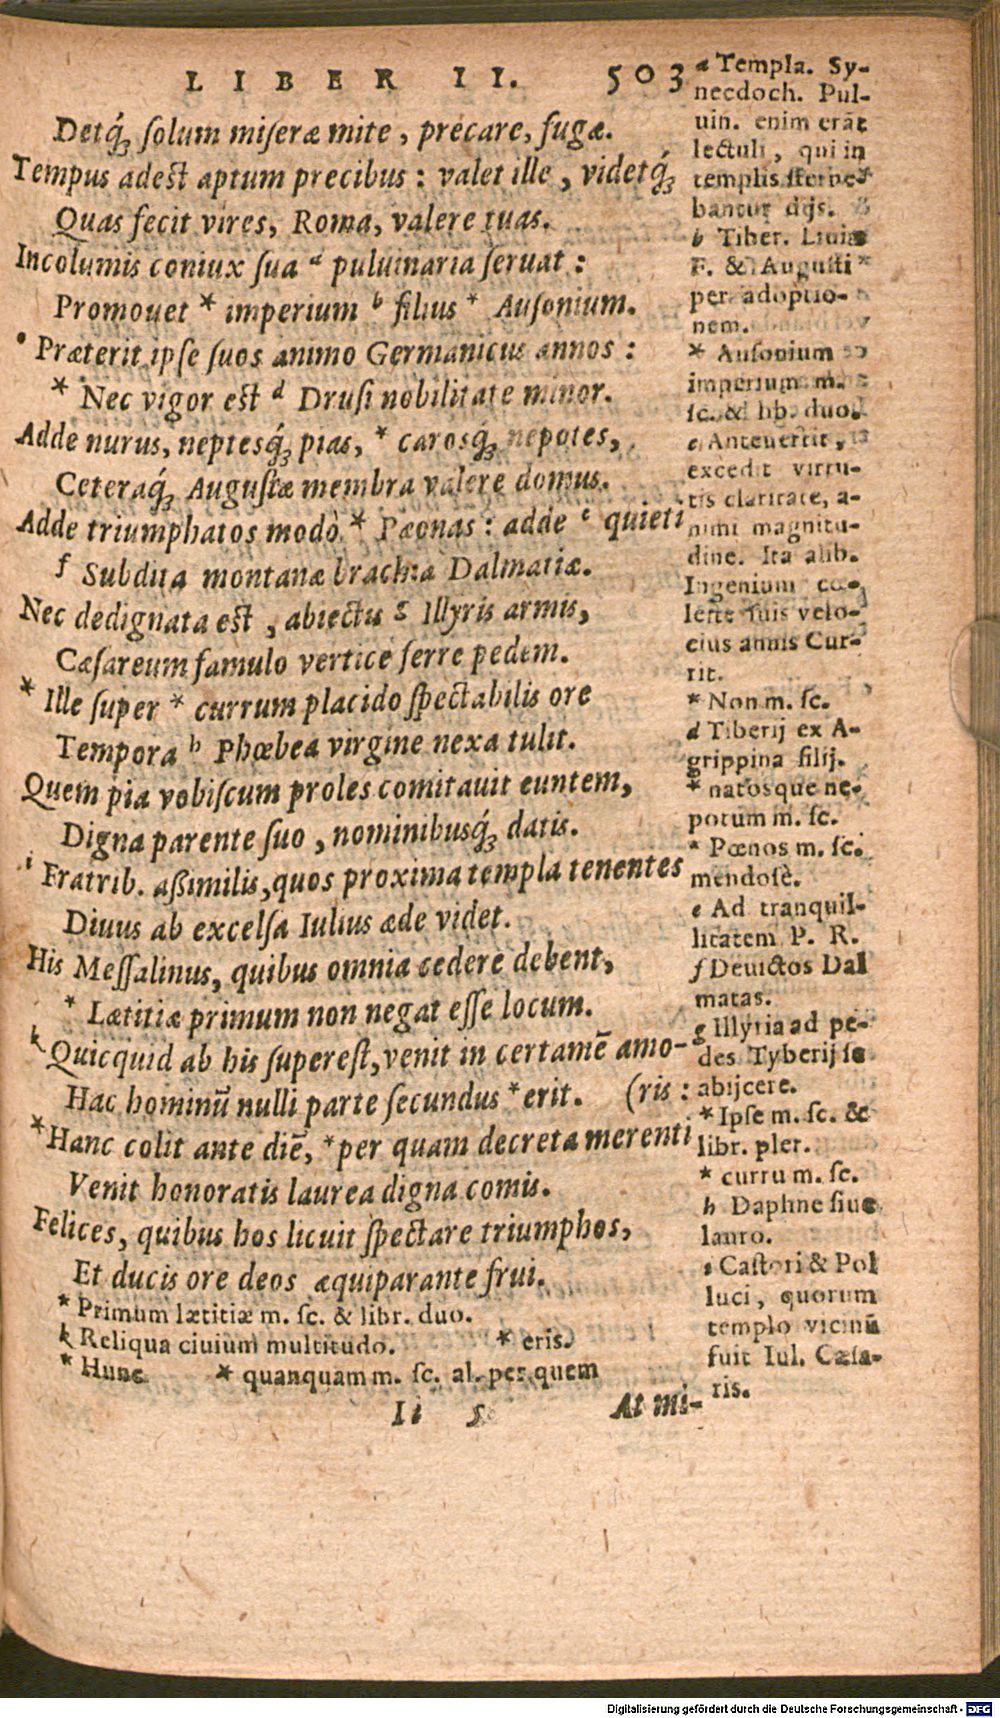 LIBER II. 503
Detq́; ſolum miſeræ mite, precare, fugæ.
Tempus adest aptum precibus: valet ille, videtq́;
Quas fecit vires, Roma, valere tuas.
Incolumis coniux ſua ᵃ puluinaria ſeruat:
Promouet * imperium ᵇ filius * Auſonium.
Præterit ipſe ſuos animo Germanicus annos:
* Nec vigor est ᵈ Druſi nobilitate minor.
Adde nurus, neptesq́; pias, * carosq́; nepotes,
Ceteraq́; Auguſtæ membra valere domus.
Adde triumphatos modò * Pæonas: adde ᵉ quieti
ᶠ Subdita montanæ brachia Dalmatiæ.
Nec dedignata est, abiectis ᵍ Illyris armis,
Cæſareum famulo vertice ferre pedem.
* Ille ſuper * currum placido ſpectabilis ore
Tempora ʰ Phœbea virgine nexa tulit.
Quem pia vobiſcum proles comitauit euntem,
Digna parente ſuo, nominibusq́; datis.
ⁱ Fratrib. aßimilis, quos proxima templa tenentes
Diuus ab excelſa Iulius æde videt.
His Meſſalinus, quibus omnia cedere debent,
* Lætitiæ primum non negat eſſe locum.
ᵏ Quicquid ab his ſupereſt, venit in certamē amo-
Hac hominū nulli parte ſecundus * erit. (ris:
* Hanc colit ante diē, * per quam decreta merenti
Venit honoratis laurea digna comis.
Felices, quibus hos licuit ſpectare triumphos,
Et ducis ore deos æquiparante frui.
* Primum lætitiæ m. ſc. & libr. duo.
k Reliqua ciuium multitudo. * eris.
* Hunc * quanquam m. ſc. al. per quem
Ii 5 At mi-
a Templa. Sy-
necdoch. Pul-
uin. enim erāt
lectuli, qui in
templis ſterne-
bantur dijs.
b Tiber. Liuiæ
F. & Auguſti
per adoptio-
nem.
* Auſonium
imperium m.
ſc. & bb. duo.
c Anteuertit,
excedit virtu-
tis claritate, a-
nimi magnitu-
dine. Ita alib.
Ingenium cœ-
leſte ſuis velo-
cius annis Cur-
rit.
* Non m. ſc.
d Tiberij ex A-
grippina filij.
* natosque ne-
potum m. ſc.
* Pœnos m. ſc.
mendoſè.
e Ad tranquil-
litatem P. R.
f Deuictos Dal
matas.
g Illyria ad pe-
des Tyberij ſe
abijcere.
* Ipſe m. ſc. &
libr. pler.
* curru m. ſc.
h Daphne ſiue
lauro.
i Caſtori & Pol
luci, quorum
templo vicinū
fuit Iul. Cæſa-
ris.
Digitalisierung gefördert durch die Deutsche Forschungsgemeinschaft - DFG